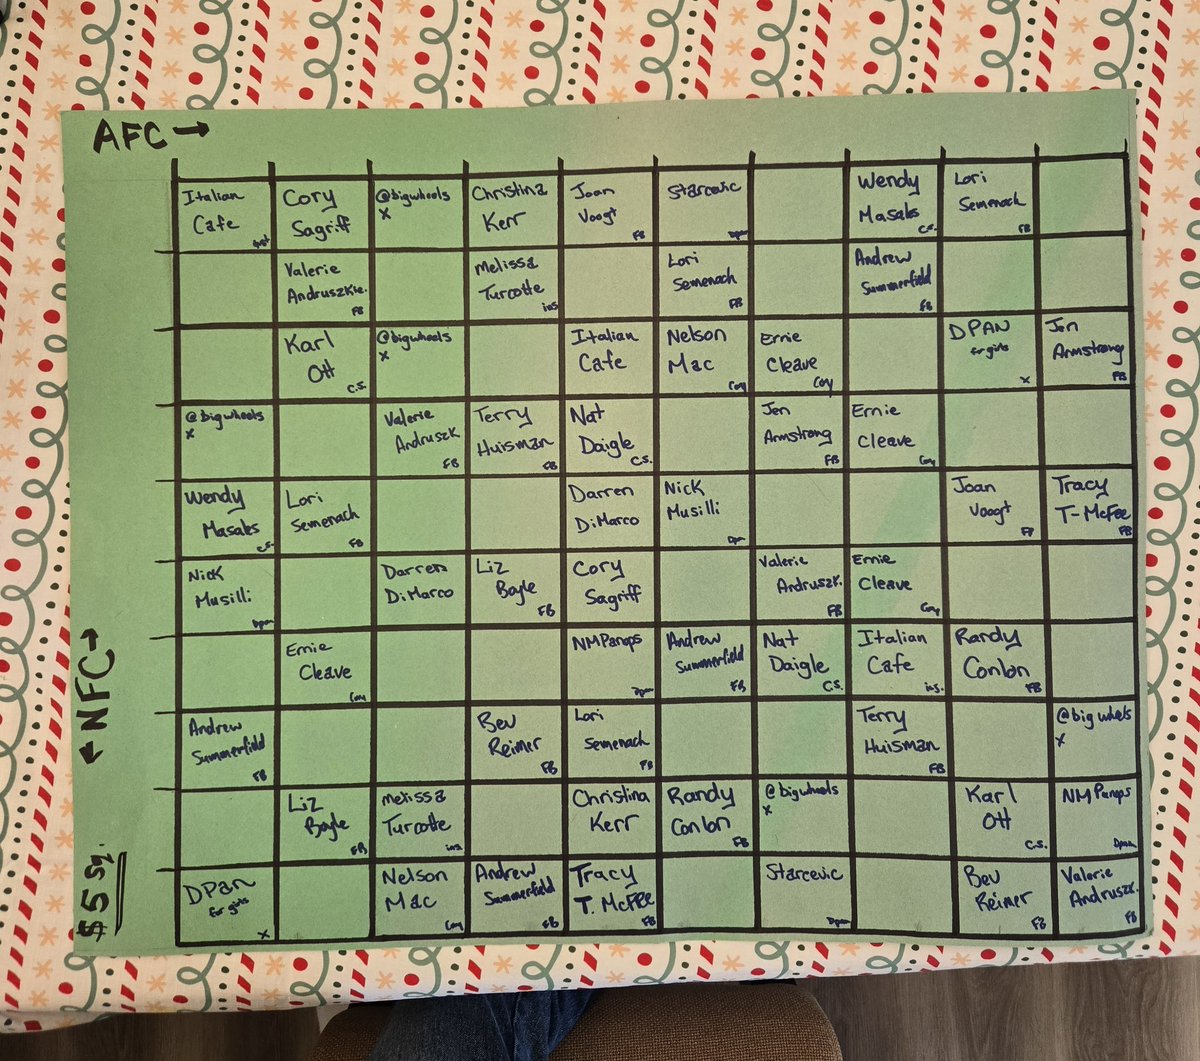 AFC →
Italian
Cafe
Cory
Sagriff
@bigwheels
x
Christina
Kerr
Joan
Voogt
FB
Starcevic
Dpan
Wendy
Masales
C.S.
Lori
Semenach
FB
Valerie
Andruszkie.
FB
Melissa
Turcotte
ins
Lori
Semenach
FB
Andrew
Summerfield
FB
Karl
Ott
C.S.
@bigwheels
x
Italian
Cafe
Nelson
Mac
Cory
Ernie
Cleave
Coy
DPAN
for girls
x
Jen
Armstrong
FB
@bigwheels
x
Valerie
Andruszk
FB
Terry
Huisman
FB
Nat
Daigle
C.S.
Jen
Armstrong
FB
Ernie
Cleave
Coy
Wendy
Masales
C.S.
Lori
Semenach
FB
Darren
DiMarco
Nick
Musilli
Dpan
Joan
Voogt
Tracy
T-McFee
FB
Nick
Musilli
Dpan
Darren
DiMarco
Liz
Boyle
FB
Cory
Sagriff
Valerie
Andruszk.
FB
Ernie
Cleave
Coy
← NFC →
Ernie
Cleave
Coy
NMPanops
Dpan
Andrew
Summerfield
FB
Nat
Daigle
C.S.
Italian
Cafe
ins.
Randy
Conlon
FB
Andrew
Summerfield
FB
Bev
Reimer
FB
Lori
Semenach
FB
Terry
Huisman
FB
@bigwheels
x
Liz
Boyle
FB
Melissa
Turcotte
ins
Christina
Kerr
Randy
Conlon
FB
@bigwheels
x
Karl
Ott
C.S.
NMPanops
Dpan
$5 Sq.
DPAN
for girls
x
Nelson
Mac
Coy
Andrew
Summerfield
FB
Tracy
T. McFee
FB
Starcevic
Dpan
Bev
Reimer
FB
Valerie
Andruszk.
FB